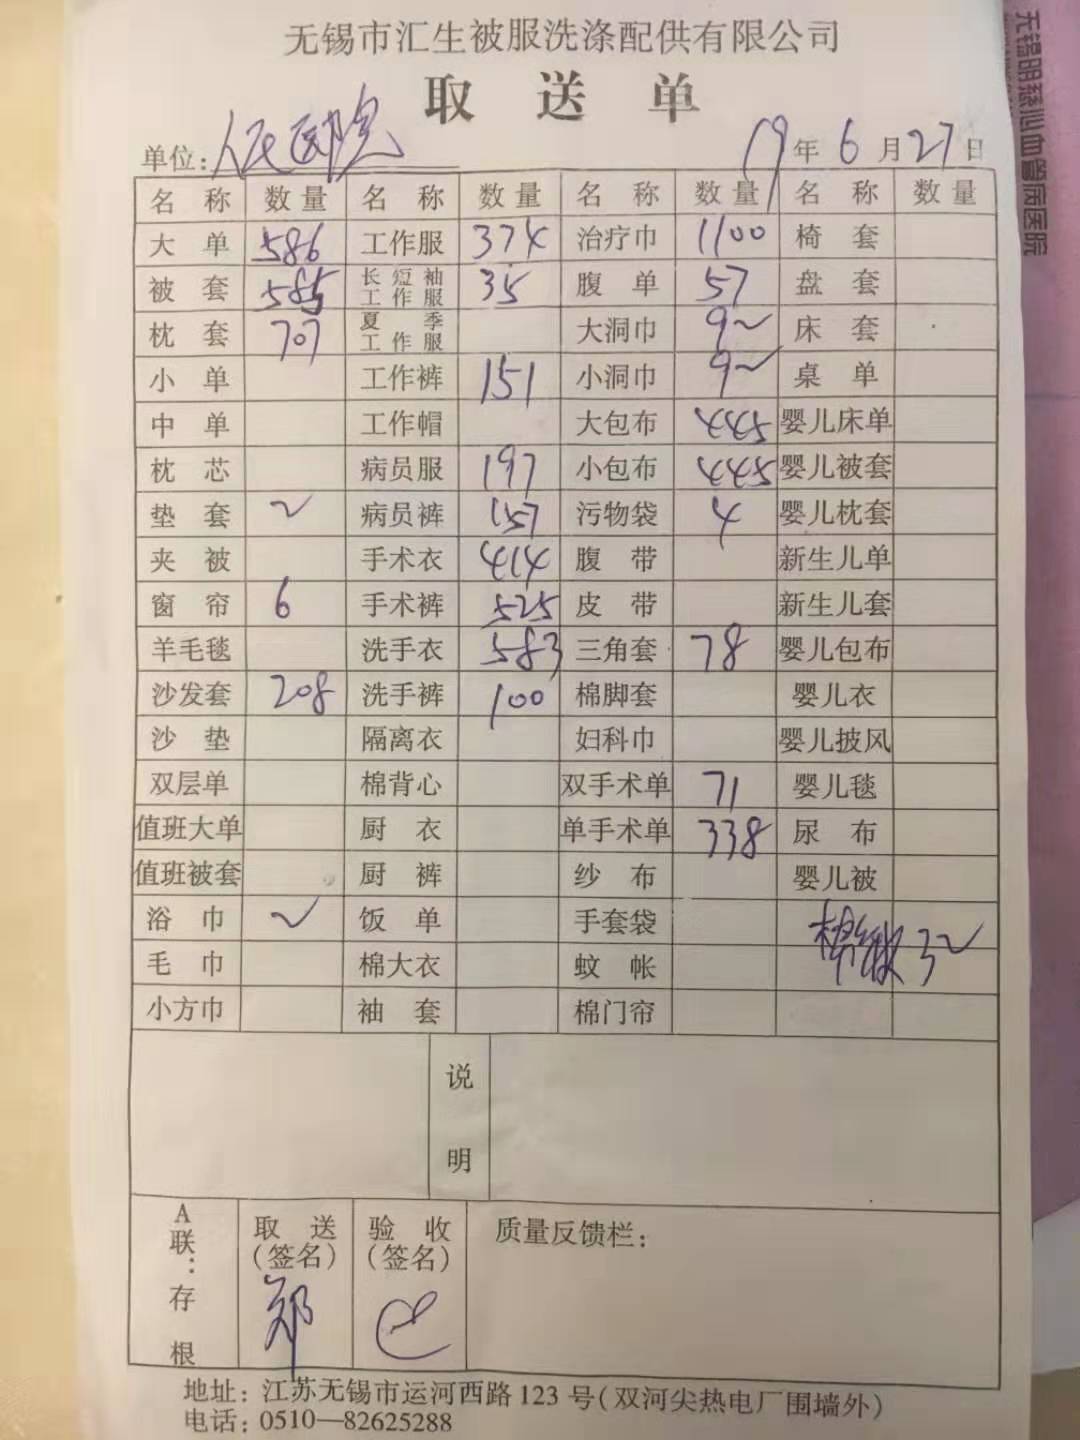 无锡市汇生被服洗涤配供有限公司
取送单
单位：人民医院 19年6月27日
名称 数量 名称 数量 名称 数量 名称 数量
大单 586 工作服 374 治疗巾 1100 椅套
被套 585 长短袖工作服 35 腹单 57 盘套
枕套 707 夏季工作服 大洞巾 92 床套
小单 工作裤 151 小洞巾 92 桌单
中单 工作帽 大包布 445 婴儿床单
枕芯 病员服 197 小包布 445 婴儿被套
垫套 2 病员裤 157 污物袋 4 婴儿枕套
夹被 手术衣 414 腹带 新生儿单
窗帘 6 手术裤 525 皮带 新生儿套
羊毛毯 洗手衣 583 三角套 78 婴儿包布
沙发套 208 洗手裤 100 棉脚套 婴儿衣
沙垫 隔离衣 妇科巾 婴儿披风
双层单 棉背心 双手术单 71 婴儿毯
值班大单 厨衣 单手术单 338 尿布
值班被套 厨裤 纱布 婴儿被
浴巾 2 饭单 手套袋
毛巾 棉大衣 蚊帐 32
小方巾 袖套 棉门帘
说明
A联：存根 取送（签名） 验收（签名） 质量反馈栏：
郑
地址：江苏无锡市运河西路123号（双河尖热电厂围墙外）
电话：0510—82625288
无锡明慈心血管病医院